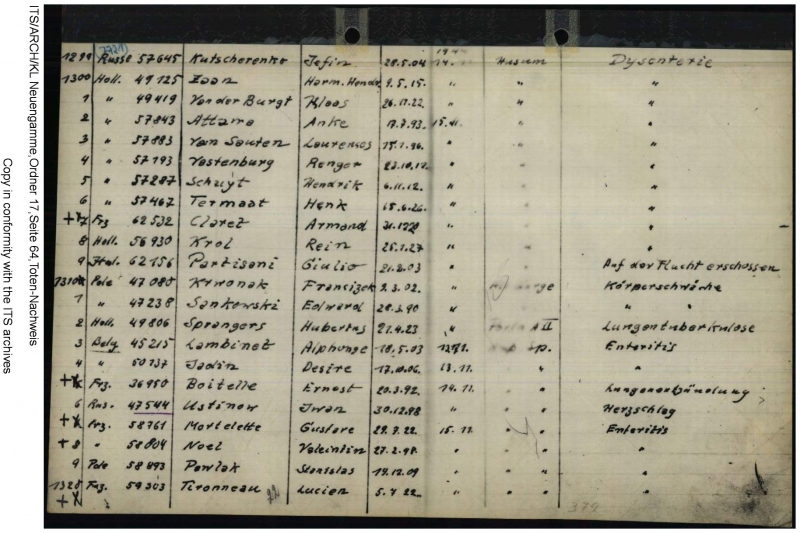 ITS/ARCH/KL Neuengamme,Ordner 17,Seite 64,Toten-Nachweis
Copy in conformity with the ITS archives
1299 Russe 57645 Kutscherenko Jefin 28.5.04 14. Husum Dysenterie
1300 Holl. 49125 Zaan Harm. 9.5.15. " "
1 " 49419 Van der Burgt Klaas 26.11.22. " " "
2 " 57843 Attama Anke 17.7.93. 15.11. " "
3 " 57883 Van Sauten Laurensos 15.1.96. " " "
4 " 57193 Vastenburg Renger 23.10.17. " " "
5 " 57287 Schuyt Hendrik 6.11.12. " " "
6 " 57467 Termaat Henk 15.6.26. " " "
+ 7 Frz 62532 Claret Armand " " "
8 Holl. 56930 Krol Rein 25.1.27 " " "
9 Ital. 62156 Partisani Giulio 21.2.03 " Auf der Flucht erschossen
47080 Kiwonak Francizek 9.3.02. " Körperschwäche
1 " 47238 Sankowski Edward 28.3.90 " " "
2 Holl. 49806 Sprangers Hubertus 21.4.23 " II Lungentuberkulose
3 Belg 45215 Lambinet Alphonse 18.5.03 Enteritis
4 " 50137 Jadin Desire 17.10.06. 13.11. " "
+ Frz. 36950 Boitelle Ernest 20.3.92. 14.11. " Lungenentzündung
6 Rus. 47544 Ustinow Iwan 30.12.98 " " Herzschlag
+ Frz. 58761 Mortelette Gustave 29.7.22. 15.11. " Enteritis
+ 8 " 58804 Noel Valentin 27.2.98. " " "
9 Pole 58893 Pawlak Stanislas 19.12.09 " " "
1320 Frz. 59303 Tironneau Lucien 5.7.22. " " "
+
22
379